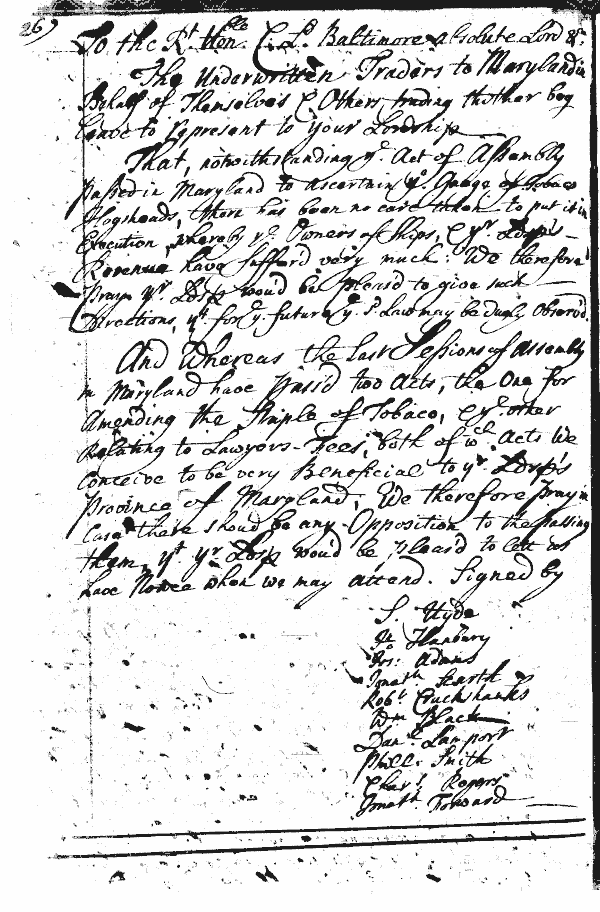 269
To the Rt. Honble. C. Ld. Baltimore absolute Lord &c.
The Underwritten Traders to Maryland in
Behalf of Themselves & Others trading thither beg
leave to represent to your Lordship
That, notwithstanding ye. Act of Assembly
passed in Maryland to ascertain ye. Gauge of Tobaco
Hogsheads, there has been no care taken to put it in
Execution, whereby ye. Owners of Ships, & yr. Ldsps
Revenue have suffer'd very much. We therefore
Pray yr. Ldsp wou'd be pleas'd to give such
Directions, yt. for ye. future ye. sd. Law may be duly Observ'd.
And Whereas the last Sessions of Assembly
in Maryland have pass'd two Acts, the One for
Amending the Staple of Tobaco, & ye. other
Relating to Lawyers Fees, both of wch. Acts We
conceive to be very Beneficial to yr. Ldsps
Province of Maryland, We therefore pray in
Case there shoud be any Opposition to the passing
them, yt yr. Ldsp wou'd be pleas'd to lett us
have Notice when we may attend. Signed by
S. Hyde
Jn. Hanbury
Jos: Adams
Jonath.
Robt. Cruckshanks
Wm Black
Danl. Lamport
Phill. Smith
Charls. Rogers
Jonath Forward